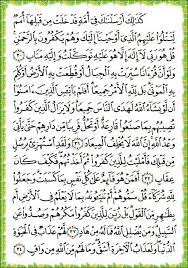 كَذَٰلِكَ أَرْسَلْنَاكَ فِي أُمَّةٍ قَدْ خَلَتْ مِن قَبْلِهَا أُمَمٌ
لِّتَتْلُوَ عَلَيْهِمُ الَّذِي أَوْحَيْنَا إِلَيْكَ وَهُمْ يَكْفُرُونَ بِالرَّحْمَٰنِ
قُلْ هُوَ رَبِّي لَا إِلَٰهَ إِلَّا هُوَ عَلَيْهِ تَوَكَّلْتُ وَإِلَيْهِ مَتَابِ ٣٠
وَلَوْ أَنَّ قُرْءَانًا سُيِّرَتْ بِهِ الْجِبَالُ أَوْ قُطِّعَتْ بِهِ الْأَرْضُ أَوْ كُلِّمَ
بِهِ الْمَوْتَىٰ بَل لِّلَّهِ الْأَمْرُ جَمِيعًا أَفَلَمْ يَايْـَٔسِ الَّذِينَ ءَامَنُوا
أَن لَّوْ يَشَاءُ اللَّهُ لَهَدَى النَّاسَ جَمِيعًا وَلَا يَزَالُ الَّذِينَ كَفَرُوا
تُصِيبُهُم بِمَا صَنَعُوا قَارِعَةٌ أَوْ تَحُلُّ قَرِيبًا مِّن دَارِهِمْ حَتَّىٰ يَأْتِيَ
وَعْدُ اللَّهِ إِنَّ اللَّهَ لَا يُخْلِفُ الْمِيعَادَ ٣١ وَلَقَدِ اسْتُهْزِئَ
بِرُسُلٍ مِّن قَبْلِكَ فَأَمْلَيْتُ لِلَّذِينَ كَفَرُوا ثُمَّ أَخَذْتُهُمْ فَكَيْفَ كَانَ
عِقَابِ ٣٢ أَفَمَنْ هُوَ قَائِمٌ عَلَىٰ كُلِّ نَفْسٍ بِمَا كَسَبَتْ وَجَعَلُوا
لِلَّهِ شُرَكَاءَ قُلْ سَمُّوهُمْ أَمْ تُنَبِّئُونَهُ بِمَا لَا يَعْلَمُ فِي الْأَرْضِ أَم
بِظَاهِرٍ مِّنَ الْقَوْلِ بَلْ زُيِّنَ لِلَّذِينَ كَفَرُوا مَكْرُهُمْ وَصُدُّوا عَنِ
السَّبِيلِ وَمَن يُضْلِلِ اللَّهُ فَمَا لَهُ مِنْ هَادٍ ٣٣ لَّهُمْ عَذَابٌ فِي الْحَيَاةِ
الدُّنْيَا وَلَعَذَابُ الْآخِرَةِ أَشَقُّ وَمَا لَهُم مِّنَ اللَّهِ مِن وَاقٍ ٣٤